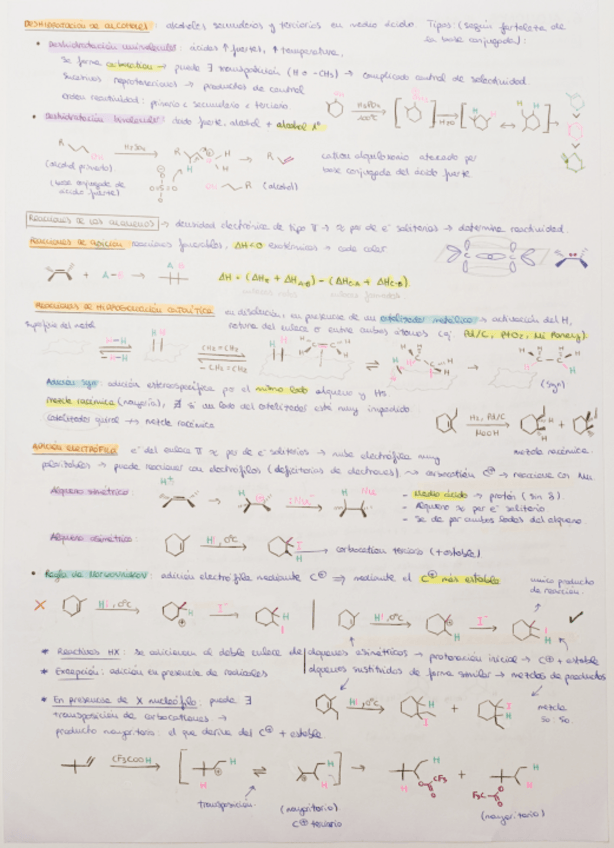 DESHIDRATACIÓN DE ALCOHOLES: alcoholes secundarios y terciarios en medio ácido. Tipos: (según fortaleza de
la base conjugada):
• Deshidratación unimolecular: ácidos ↑ fuertes, ↑ temperatura.
Se forma carbocatión → puede ∃ transposición (H o -CH₃) → complicado control de selectividad.
→ productos de control
Orden reactividad: primario < secundario < terciario
OH H₃PO₄ 100°C H₂O
• Deshidratación bimolecular: ácido fuerte, alcohol + alcohol 1º
R OH H₂SO₄ R H H R
(alcohol primario)
(base conjugada de
ácido fuerte)
OH R (alcohol)
catión alquiloxonio atacado por
base conjugada del ácido fuerte
REACCIONES DE LOS ALQUENOS → densidad electrónica de tipo π → ≈ par de e⁻ solitarios → determina reactividad.
REACCIONES DE ADICIÓN: reacciones favorables, ΔH<0 exotérmicas →
+ A-B → A B
ΔH = (ΔHπ + ΔH A-B) - (ΔH C-A + ΔH C-B).
REACCIONES DE HIDROGENACIÓN CATALÍTICA: en disolución, en presencia de un catalizador metálico → activación del H,
rotura del enlace σ entre ambos átomos (ej: Pd/C, PtO₂, Ni Raney).
Superficie del metal
H-H
-H-H
CH₂=CH₂
-CH₂=CH₂
(syn)
Adición syn: adición estereoespecífica por el mismo lado alqueno y H₂
mezcla racémica (mayoría), ∄ si un lado del catalizador está muy impedido.
catalizador quiral → mezcla racémica
H₂, Pd/C
MeOH
+
mezcla racémica.
ADICIÓN ELECTRÓFILA: e⁻ del enlace π ≈ par de e⁻ solitarios → nube electrónica muy
polarizable → puede reaccionar con electrófilos (deficitarios de electrones) → carbocatión C⊕ → reacciona con Nu.
Alqueno simétrico:
H⊕ H :Nu⁻ H Nu
- Medio ácido → protón
- Alqueno ≈ par e⁻ solitario
- Se da por ambos lados del alqueno
Alqueno asimétrico:
HI, 0°C I H → carbocatión terciario (+ estable)
• Regla de Markovnikov: adición electrófila mediante C⊕ ⇒ mediante el C⊕ más estable
único producto
de reacción.
✗ HI, 0°C H I⁻ H I | HI, 0°C H I⁻ I H ✓
* Reactivos HX: se adicionan al doble enlace de alquenos asimétricos → protonación inicial → C⊕ + estable
* Excepción: adición en presencia de radicales
alquenos sustituidos de forma similar → mezclas de productos
* En presencia de X nucleófilo: puede ∃
transposición de carbocationes →
producto mayoritario: el que deriva del C⊕ + estable.
HI, 0°C H I + I H
mezcla
50:50.
CF₃COOH H H H H CF₃ + H
F₃C
transposición.
(mayoritario)
C⊕ terciario
(mayoritario)